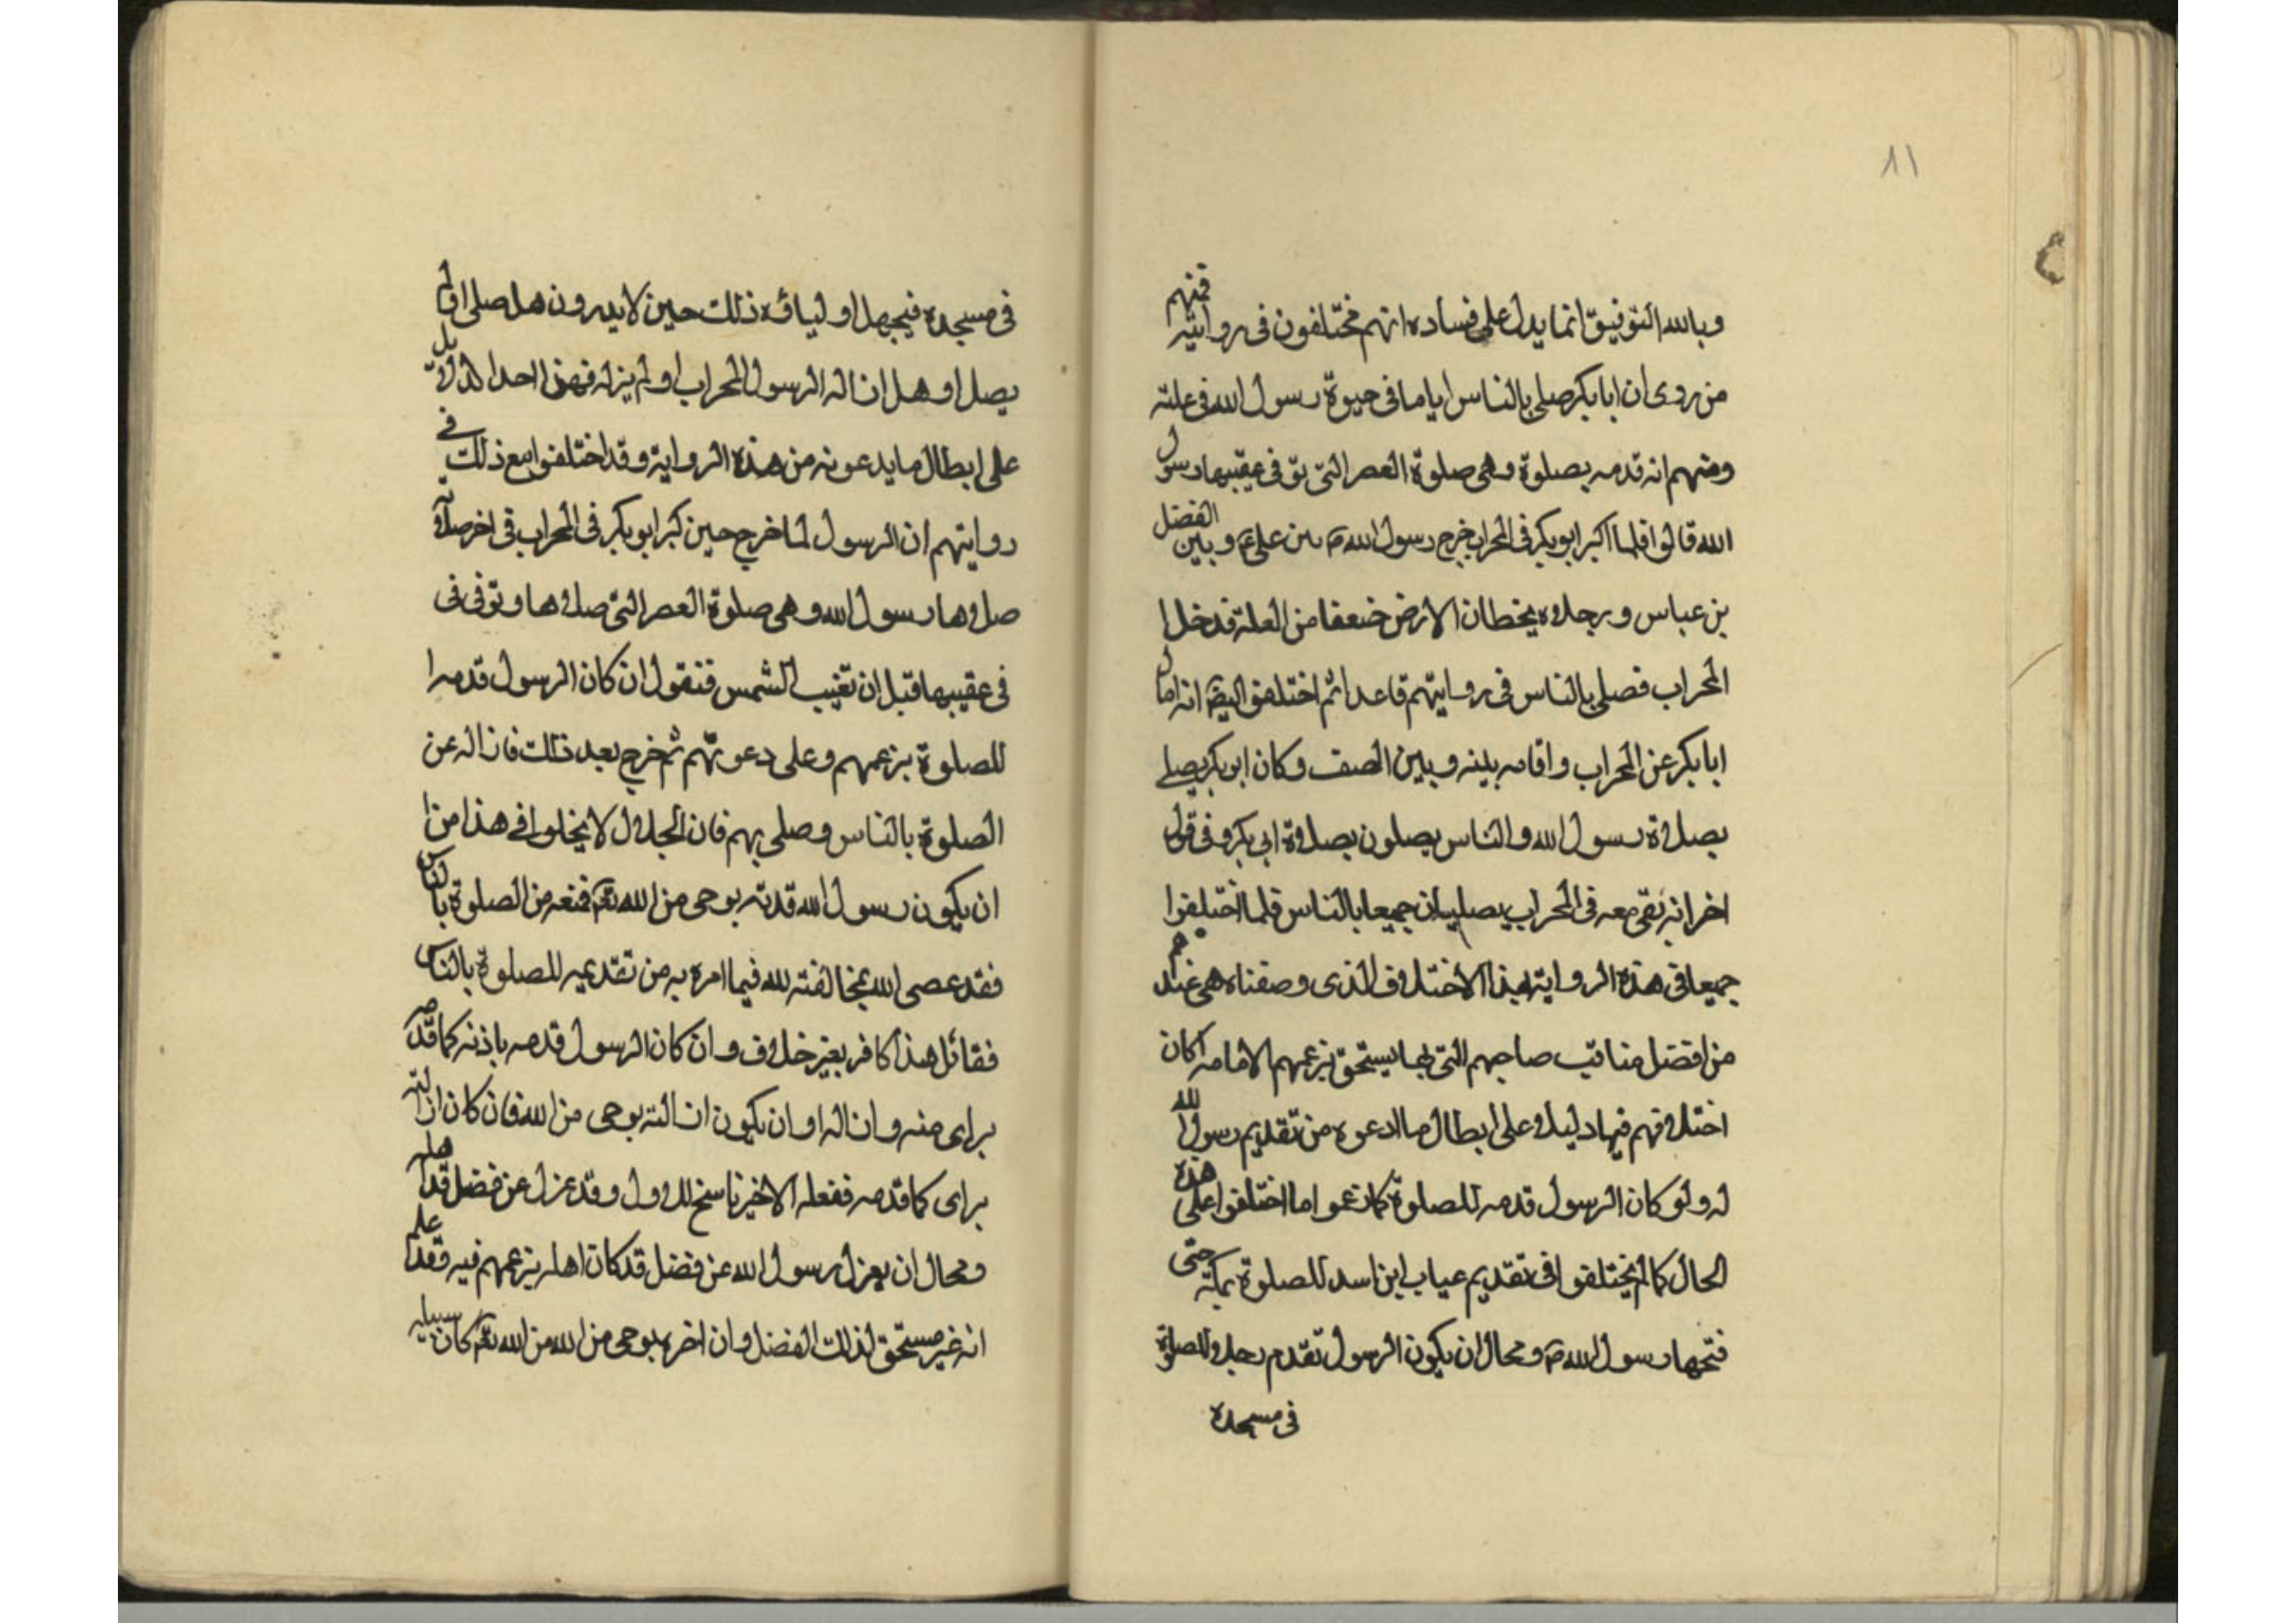 ٨١
وبالله التوفيق انما يدل على فساده انهم مختلفون فى روايته فمنهم
من روى ان ابا بكر صلى بالناس اياما فى حيوة رسول الله فى علته
ومنهم انه قدمه بصلوة وهى صلوة العصر التى توفى عقيبها رسول
الله قالوا فلما اكبر ابو بكر فى المحراب خرج رسول الله ص بين على ع وبين الفضل
بن عباس ورجلاه يخطان الارض ضعفا من العلة فدخل ا
المحراب فصلى بالناس فى روايتهم قاعدا ثم اختلفوا ايضا انه امال
ابا بكر عن المحراب واقامه بينه وبين الصف وكان ابو بكر يصلى
بصلاة رسول الله والناس يصلون بصلاة ابى بكر وفى قول
اخر انه بقى معه فى المحراب يصليان جميعا بالناس فلما اختلفوا
جميعا فى هذه الرواية بهذا الاختلاف الذى وصفناه هى عندهم
من افضل مناقب صاحبهم التى بها يستحق بزعمهم الامامه كان
اختلافهم فيها دليلا على ابطال ما ادعوه من تقديم رسول الله
له ولو كان الرسول قدمه للصلوة كما زعموا ما اختلفوا على هذه
الحال كما لم يختلفوا فى تقديم عياب ابن اسد للصلوة بمكة حتى
فتحها رسول الله ص ومحال ان يكون الرسول تقدم رجلا للصلوة
فى مسجده
فى مسجده فيجهل اولياؤه ذلك حين لا يدرون هل صلى او لم
يصل او هل ازاله الرسول المحراب او لم يزله فهذا احد الدلائل
على ابطال ما يدعونه من هذه الرواية وقد اختلفوا مع ذلك فى
روايتهم ان الرسول لما خرج حين كبر ابو بكر فى المحراب فى اخر صلاة
صلاها رسول الله وهى صلوة العصر التى صلاها وتوفى فى
فى عقيبها قبل ان تغيب الشمس فنقول ان كان الرسول قدمه ا
للصلوة بزعمهم وعلى دعوتهم ثم خرج بعد ذلك فازاله عن
الصلوة بالناس وصلى بهم فان الجلال لا يخلوا فى هذا من ا
ان يكون رسول الله قدمه بوحى من الله تعم فمنعه من الصلوة بالناس
فقد عصى الله بمخالفته لله فيما امره به من تقديمه للصلوة بالناس
فقائل هذا كافر بغير خلاف وان كان الرسول قدمه باذنه كما قدمه
براى منه وازاله او ان يكون ازالته بوحى من الله فان كان ازالته
براى كما قدمه ففعله الاخير ناسخ للاول وقد عزل عن فضل قد اهله
ومحال ان يعزل رسول الله عن فضل قد كان اهله بزعمهم فيه فقد علم
انه غير مستحق لذلك الفضل وان اخره بوحى من الله من الله تعم كان سبيله